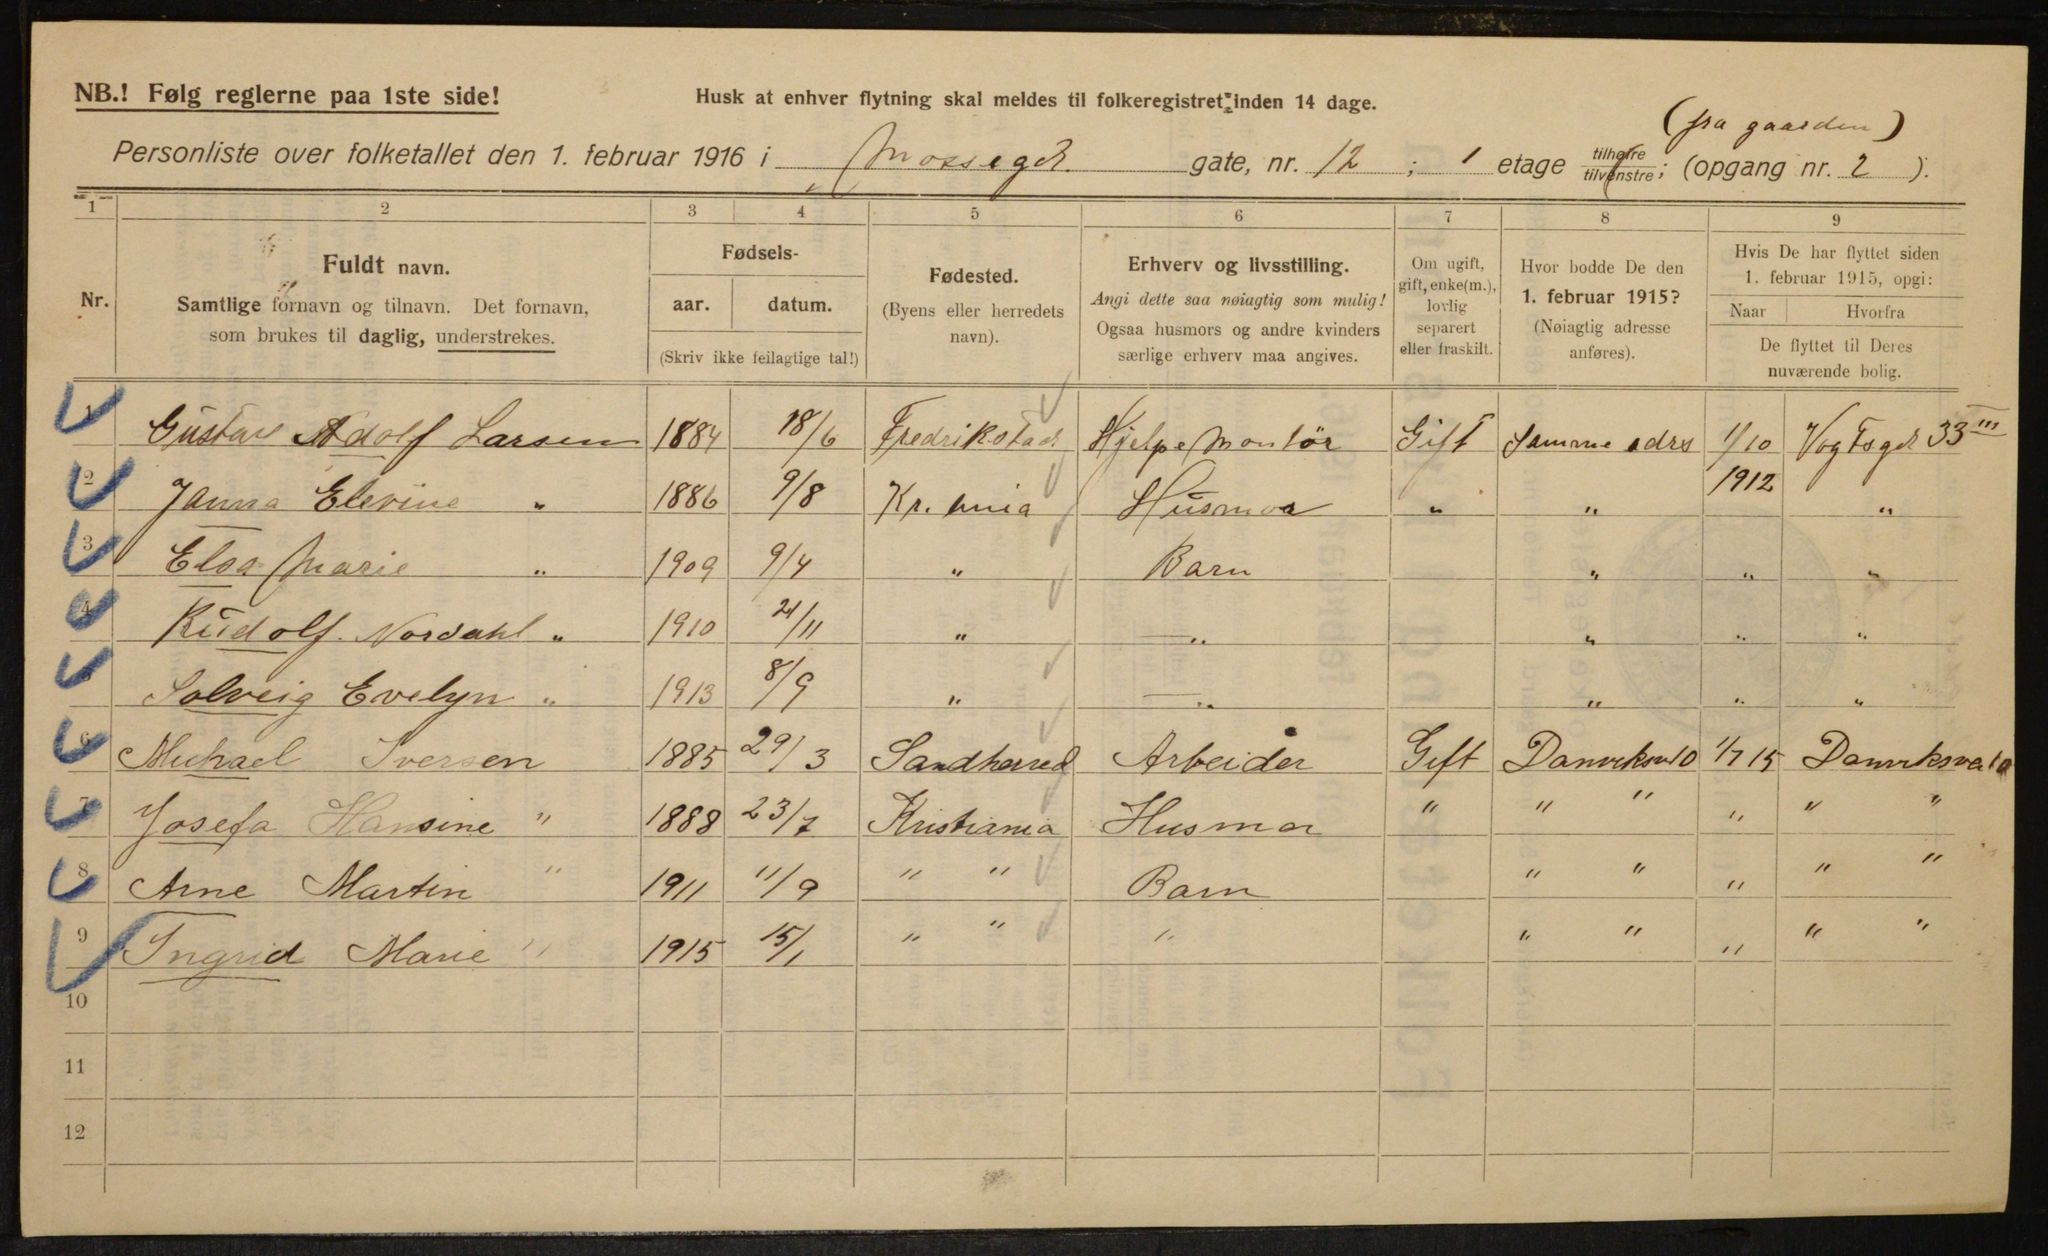 NB.! Følg reglerne paa 1ste side!
Husk at enhver flytning skal meldes til folkeregistret inden 14 dage.
(fra gaarden)
Personliste over folketallet den 1. februar 1916 i Mossegt. gate, nr. 12; 1 etage tilhøire/tilvenstre; (opgang nr. 2).
1 2 3 4 5 6 7 8 9
Nr.
Fuldt navn.
Samtlige fornavn og tilnavn. Det fornavn,
som brukes til daglig, understrekes.
Fødsels-
aar. datum.
(Skriv ikke feilagtige tal!)
Fødested.
(Byens eller herredets
navn).
Erhverv og livsstilling.
Angi dette saa nøiagtig som mulig!
Ogsaa husmors og andre kvinders
særlige erhverv maa angives.
Om ugift,
gift, enke(m.),
lovlig
separert
eller fraskilt.
Hvor bodde De den
1. februar 1915?
(Nøiagtig adresse
anføres).
Hvis De har flyttet siden
1. februar 1915, opgi:
Naar Hvorfra
De flyttet til Deres
nuværende bolig.
1 Gustav Adolf Larsen 1884 18/6 Fredrikstad Hjelpe Montør Gift Samme adrs 1/10 1912 Vogtsgt 33 III
2 Janna Elevine " 1886 9/8 Kr.ania Husmor " " "
3 Elsa Marie " 1909 9/4 " Barn " " "
4 Rudolf Nordahl " 1910 21/11 " — " — " " "
5 Solveig Evelyn " 1913 8/9 " — " — " " "
6 Michael Iversen 1885 29/3 Sandherred Arbeider Gift Danviksv 10 1/7 15 Danviksvei 10
7 Josefa Hansine " 1888 23/7 Kristiania Husmor " " " " " "
8 Arne Martin " 1911 11/9 " " Barn " " " " "
9 Ingrid Marie " 1915 15/1 " " " " " " " "
10
11
12